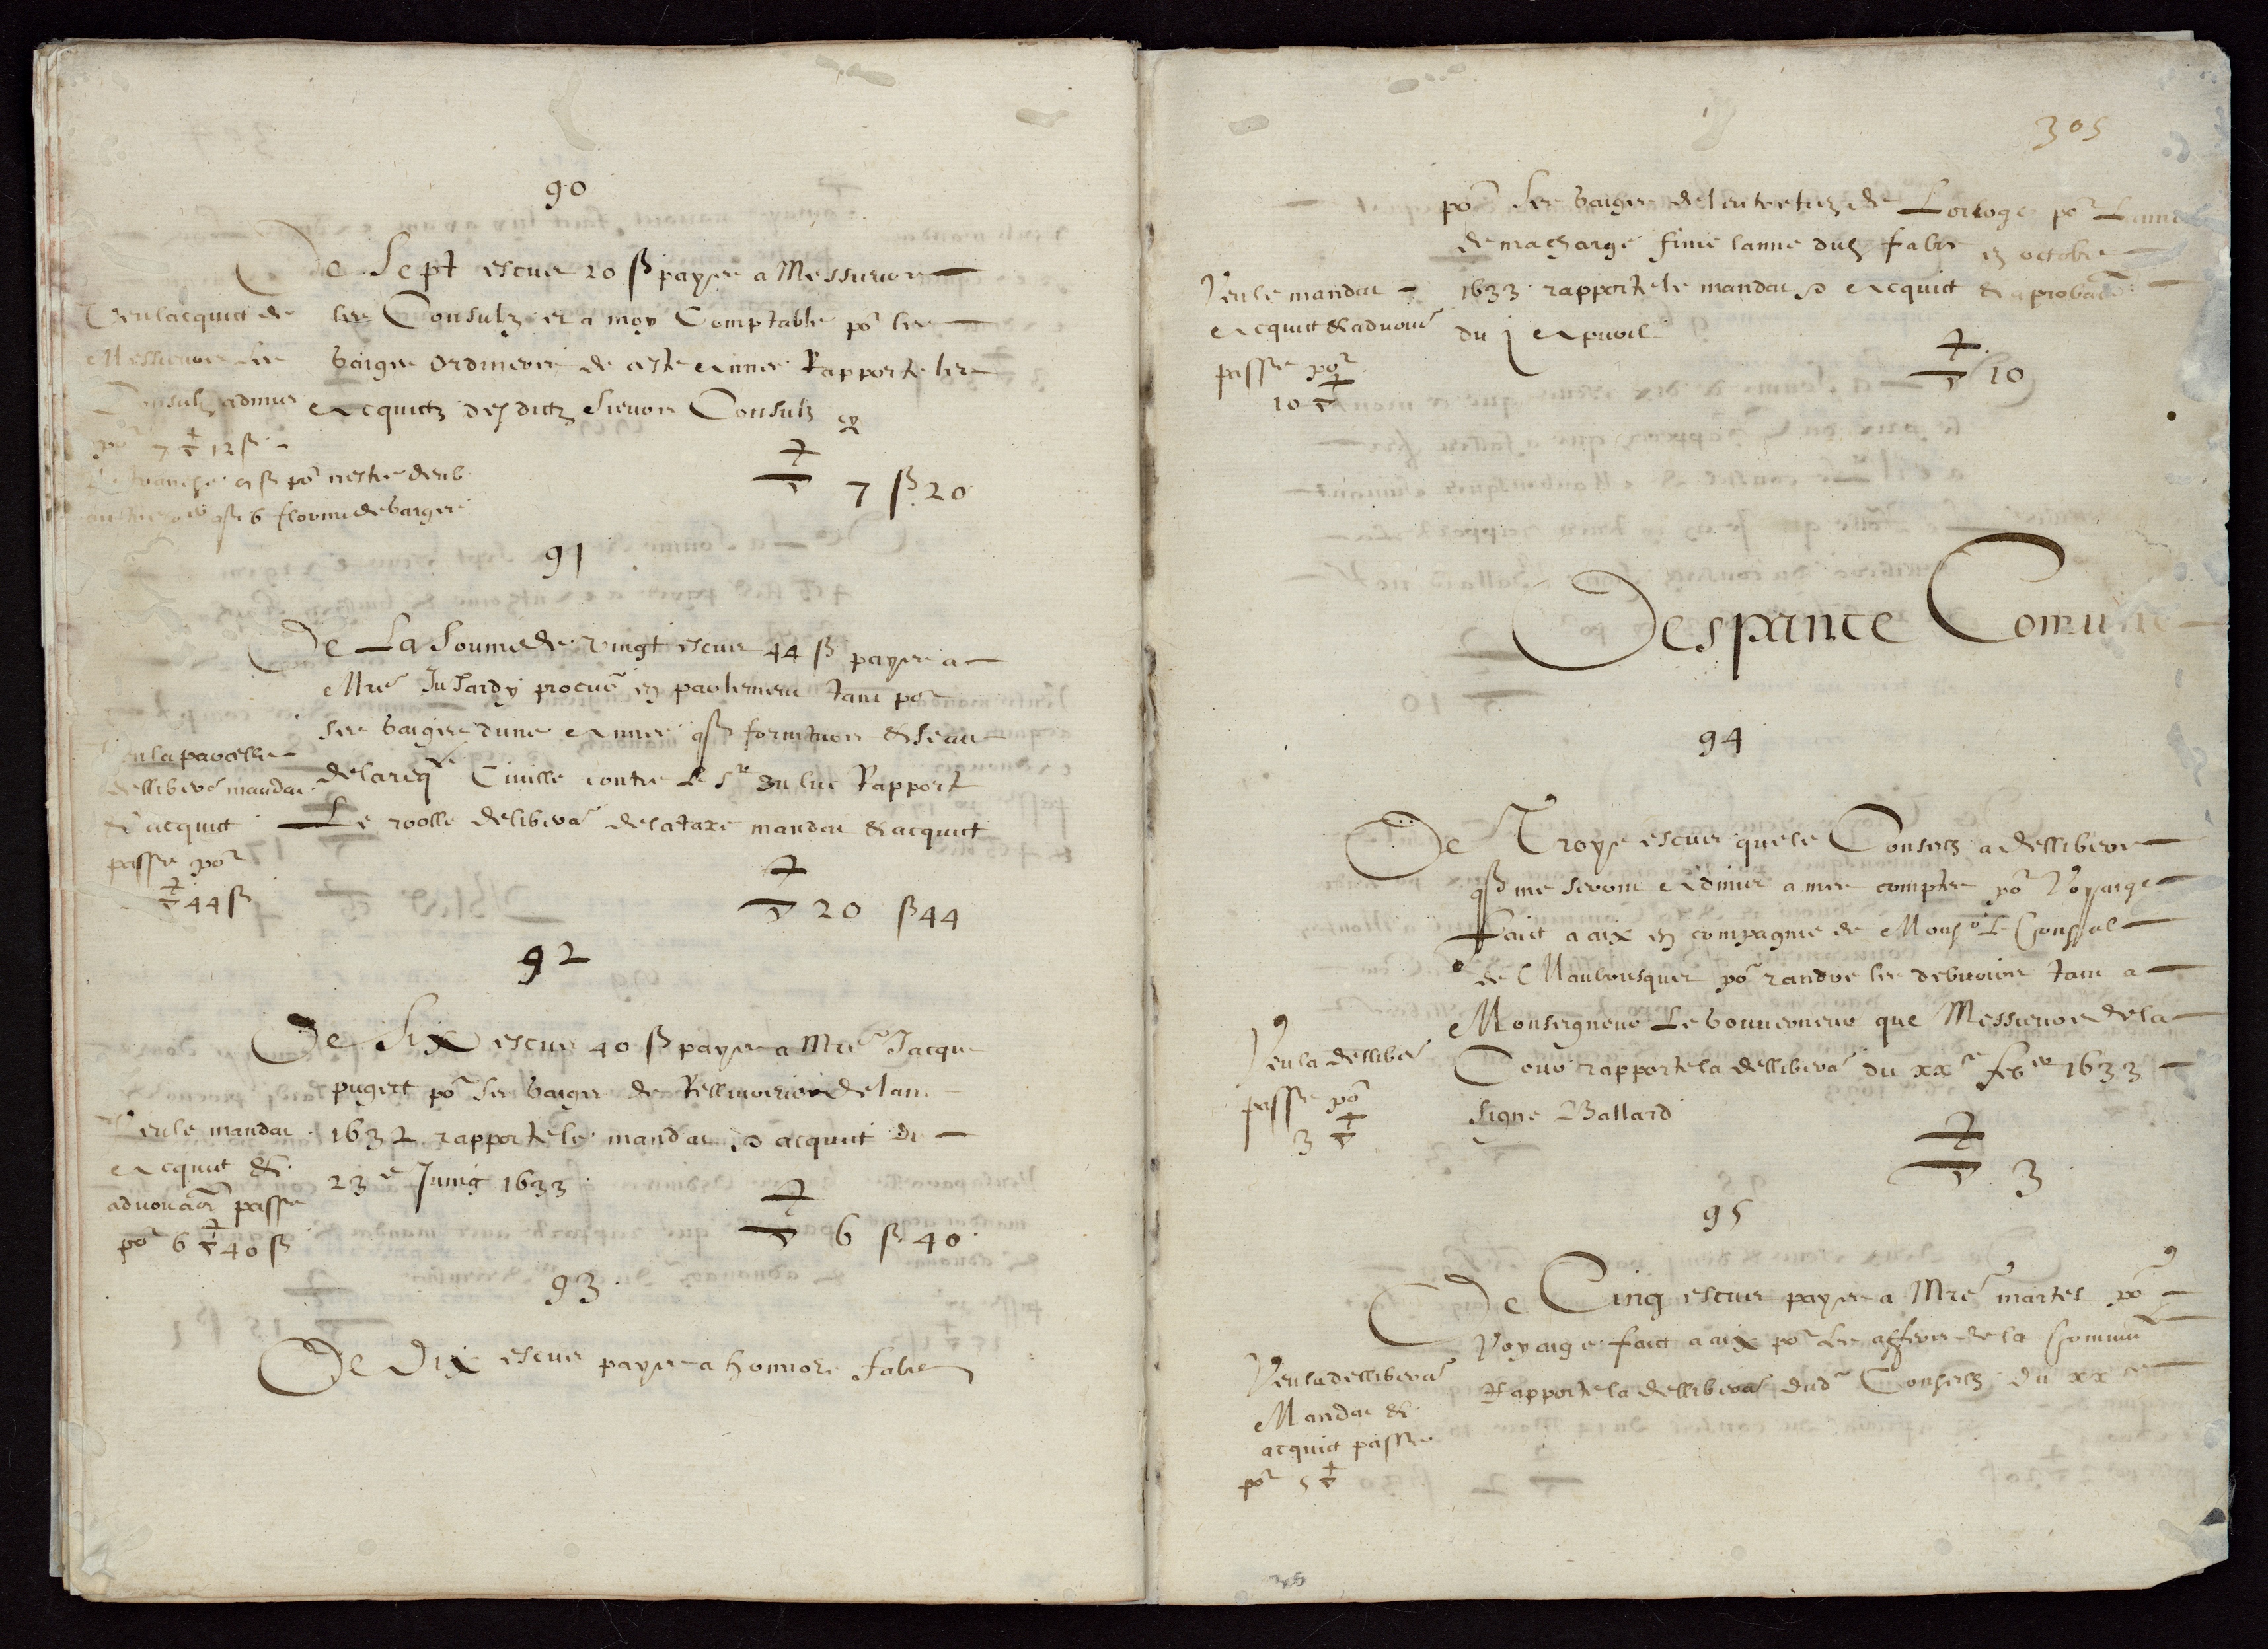 90
De Sept escus 20 ß payes a Messieurs
les Consulz et a moy Comptable po^r les
gaiges ordineres de ceste Annee Rapporte les
Acquictz desdictz Sieurs Consulz
7 ß 20
Veu lacquict de
Messieurs les
Consulz admis
po^r 7 12 ß
po^r nestre deub
6 florins de gaiges
91
De La Somme de vingt escus 44 ß payes a
M^re Tardy procur̃ en parlement tant po^r
ses gaiges dune Annee q̃ fornitures & seau
de la req^te Civille contre le S^r du luc Rapporte
Le roolle delibera͠ de la taxe mandat & acquict
20 ß 44
Veu la parcelle
dellibera͠ mandat
& acquict
passe po^r
44 ß
92
De Six escus 40 ß payes a M^re Jacques
pugect po^r ses gaiges de
1632 rapporte le mandat & acquict du
23^e Juing 1633
6 ß 40
Veu le mandat
Acquict &
advouaõn passe
po^r 6 40 ß
93
De Dix escus payes a honnore fabre
305
po^r ses gaiges de lentretien de Lorloge po^r Lannee
de ma charge finie lanne dud fabre en octobre
1633 rapporte le mandat & Acquict & aprobaõn
du j Apvril
10
Veu le mandat
Acquict & advoue
passe po^r
10
Despance Comune
94
De Troys escus que le Conseilh a dellibere
q̃ me seront Admis a mes comptes po^r Voyaige
Faict a aix en compagnie de Mons^r Le Consul
de Maubousquet po^r randre les debvoirs tant a
Monseigneur Le gouverneur que Messieurs de la
Cour rapporte la dellibera͠ du xx^e feb^er 1633
Signe Ballard
3
Veu la dellibera͠
passe po^r
3
95
De Cinq escus payes a M^re martel po^r
Voyaige faict a aix po^r les afferes de la Commun^te
Rapporte la dellibera͠ dud^t Conseilh du xx
Veu la dellibera͠
Mandat &
acquict passe
po^r 5